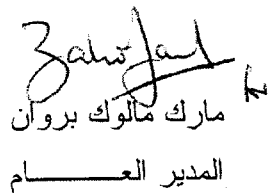 مارك مالوك بروان
المدير العـــــــام